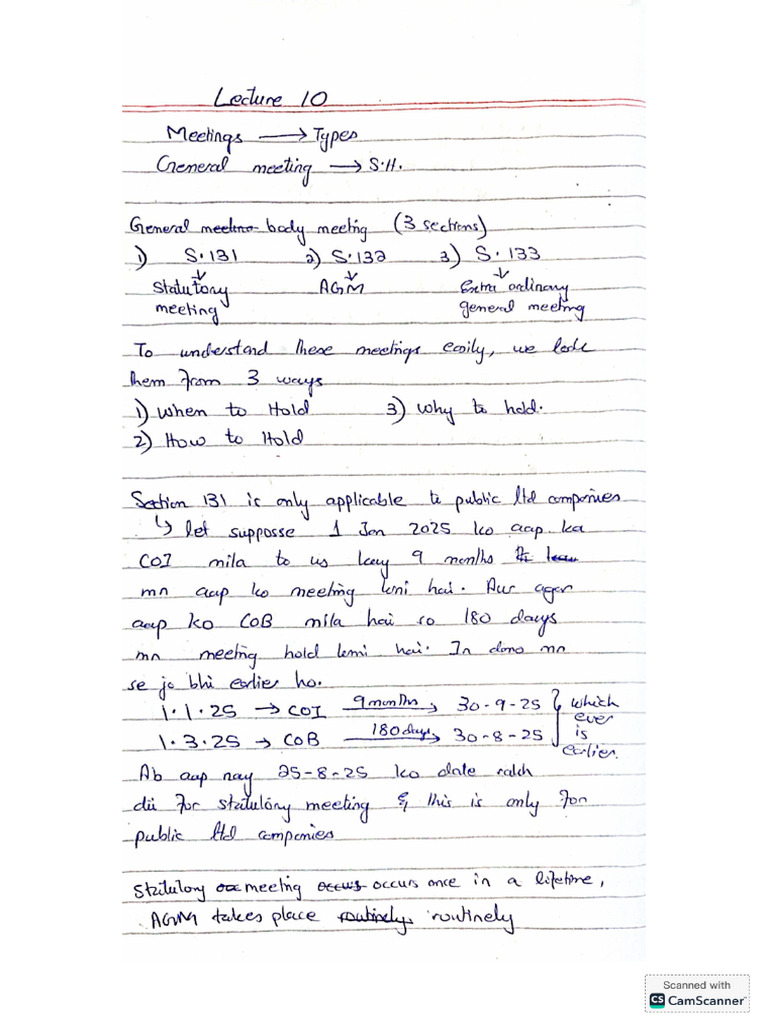 Lecture 10
Meetings ⟶ Types
General meeting ⟶ S.H.
General meetino body meeting (3 sections)
1) S.131 2) S.132 3) S.133
↓ ↓ ↓
Statutory AGM Extra ordinary
meeting general meeting
To understand these meetings easily, we look
them from 3 ways
1) When to Hold 3) Why to hold.
2) How to Hold
Section 131 is only applicable to public ltd companies
↳ let suppose 1 Jan 2025 ko aap ka
COI mila to us kay 9 months
mn aap ko meeting krni hai. Aur ager
aap ko COB mila hai so 180 days
mn meeting hold krni hai. In dono mn
se jo bhi earlier ho.
1.1.25 → COI 9 months ⟶ 30-9-25 } which ever is earlier.
1.3.25 → COB 180 days ⟶ 30-8-25
Ab aap nay 25-8-25 ko date rakh
di for statutory meeting & this is only for
public ltd companies
Statutory meeting occurs occurs once in a lifetime,
AGM takes place routinely routinely
Scanned with
CS CamScanner